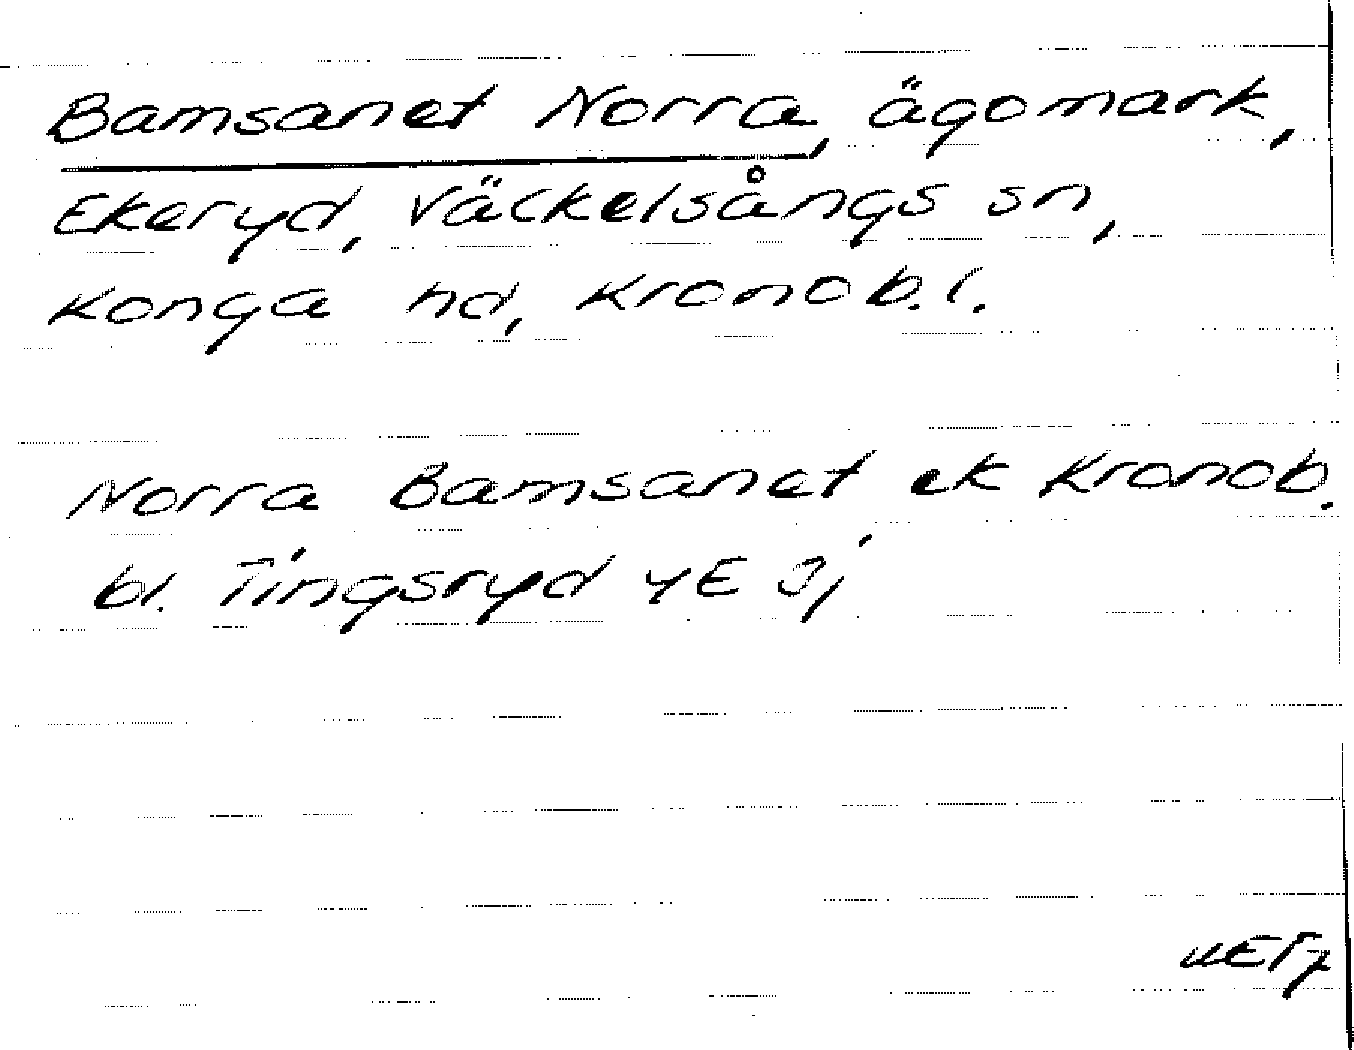 Bamsanet Norra, ägomark,
Ekeryd, Väckelsångs sn,
Konga hd, Kronob. l.
Norra Bamsanet, ek Kronob.
bl. Tingsryd 4E 3j